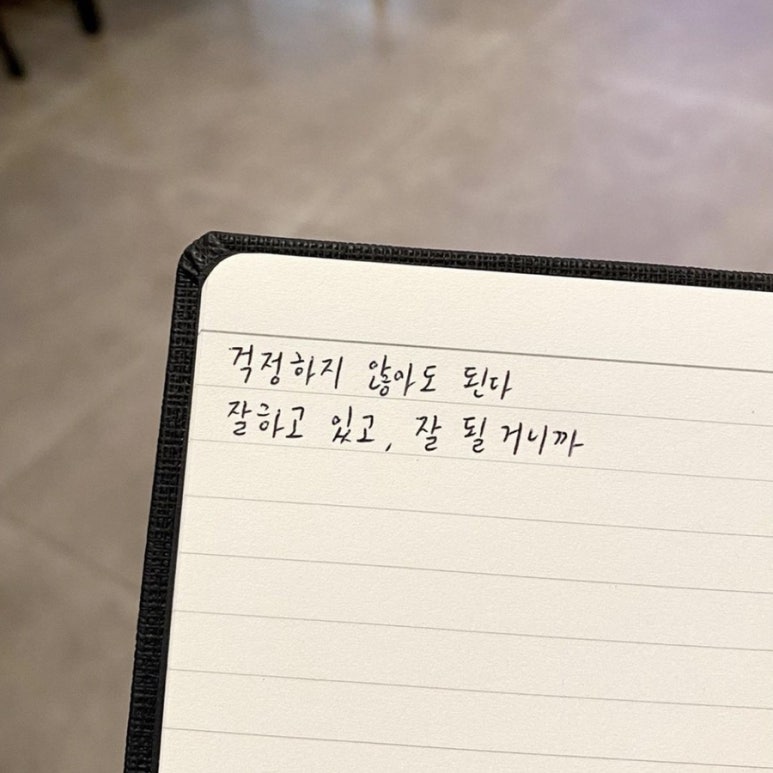 걱정하지 않아도 된다
잘하고 있고, 잘 될 거니까